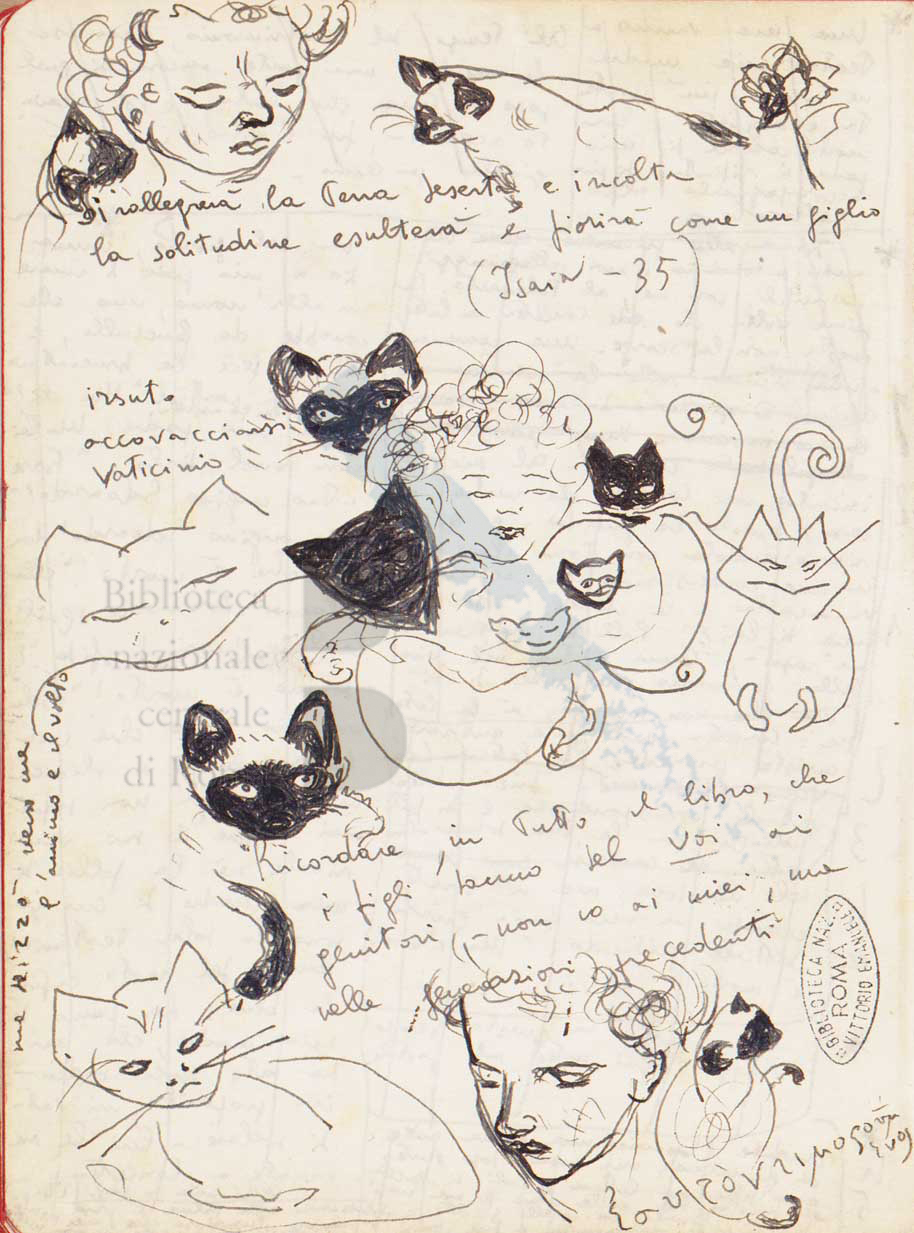 Si rallegrerà la Terra deserta e incolta
la solitudine esulterà e fiorirà come un giglio
(Isaia - 35)
irsuto
accovacciarsi
Vaticinio
me drizzò verso me
l'animo e il volto
Biblioteca
nazionale
centrale
di R
Ricordare, in Tutto il libro, che
i figli danno del Voi ai
genitori (- non io ai miei, ma
nelle generazioni precedenti
BIBLIOTECA NAZ.
ROMA
VITTORIO EMANUELE